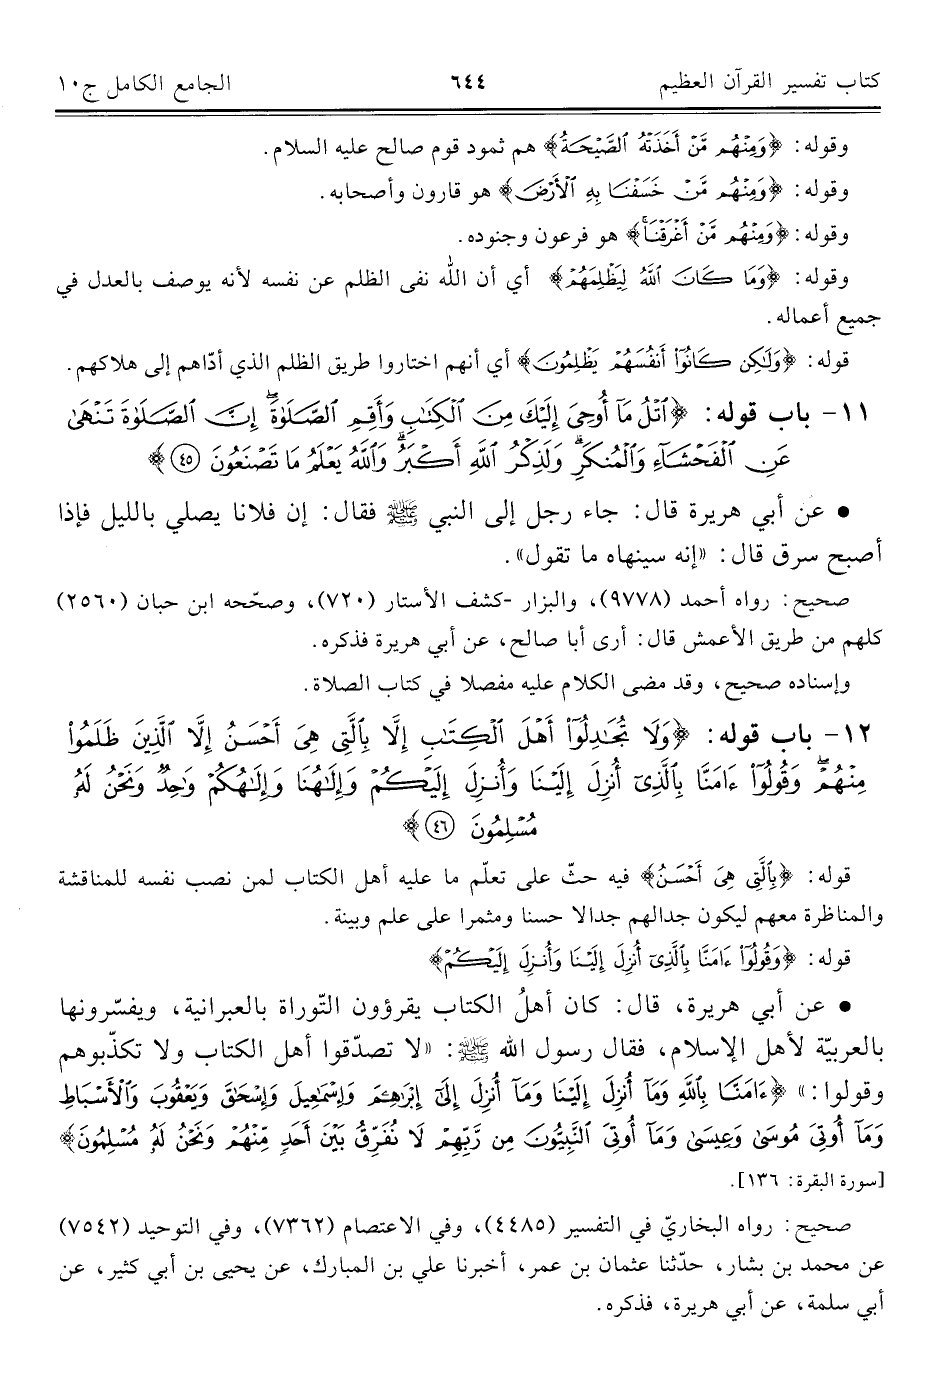 كتاب تفسير القرآن العظيم ٦٤٤ الجامع الكامل ج١٠
وقوله: ﴿وَمِنْهُم مَّنْ أَخَذَتْهُ ٱلصَّيْحَةُ﴾ هم ثمود قوم صالح عليه السلام.
وقوله: ﴿وَمِنْهُم مَّنْ خَسَفْنَا بِهِ ٱلْأَرْضَ﴾ هو قارون وأصحابه.
وقوله: ﴿وَمِنْهُم مَّنْ أَغْرَقْنَاۚ﴾ هو فرعون وجنوده.
وقوله: ﴿وَمَا كَانَ ٱللَّهُ لِيَظْلِمَهُمْ﴾ أي أن الله نفى الظلم عن نفسه لأنه يوصف بالعدل في
جميع أعماله.
قوله: ﴿وَلَٰكِن كَانُوٓا۟ أَنفُسَهُمْ يَظْلِمُونَ﴾ أي أنهم اختاروا طريق الظلم الذي أدّاهم إلى هلاكهم.
١١- باب قوله: ﴿ٱتْلُ مَآ أُوحِىَ إِلَيْكَ مِنَ ٱلْكِتَٰبِ وَأَقِمِ ٱلصَّلَوٰةَۖ إِنَّ ٱلصَّلَوٰةَ تَنْهَىٰ
عَنِ ٱلْفَحْشَآءِ وَٱلْمُنكَرِۗ وَلَذِكْرُ ٱللَّهِ أَكْبَرُۗ وَٱللَّهُ يَعْلَمُ مَا تَصْنَعُونَ ٤٥﴾
● عن أبي هريرة قال: جاء رجل إلى النبي ﷺ فقال: إن فلانا يصلي بالليل فإذا
أصبح سرق قال: «إنه سينهاه ما تقول».
صحيح: رواه أحمد (٩٧٧٨)، والبزار -كشف الأستار (٧٢٠)، وصحّحه ابن حبان (٢٥٦٠)
كلهم من طريق الأعمش قال: أرى أبا صالح، عن أبي هريرة فذكره.
وإسناده صحيح، وقد مضى الكلام عليه مفصلا في كتاب الصلاة.
١٢- باب قوله: ﴿وَلَا تُجَٰدِلُوٓا۟ أَهْلَ ٱلْكِتَٰبِ إِلَّا بِٱلَّتِى هِىَ أَحْسَنُ إِلَّا ٱلَّذِينَ ظَلَمُوا۟
مِنْهُمْۖ وَقُولُوٓا۟ ءَامَنَّا بِٱلَّذِىٓ أُنزِلَ إِلَيْنَا وَأُنزِلَ إِلَيْكُمْ وَإِلَٰهُنَا وَإِلَٰهُكُمْ وَٰحِدٌ وَنَحْنُ لَهُۥ
مُسْلِمُونَ ٤٦﴾
قوله: ﴿بِٱلَّتِى هِىَ أَحْسَنُ﴾ فيه حثّ على تعلّم ما عليه أهل الكتاب لمن نصب نفسه للمناقشة
والمناظرة معهم ليكون جدالهم جدالا حسنا ومثمرا على علم وبينة.
قوله: ﴿وَقُولُوٓا۟ ءَامَنَّا بِٱلَّذِىٓ أُنزِلَ إِلَيْنَا وَأُنزِلَ إِلَيْكُمْ﴾
● عن أبي هريرة، قال: كان أهلُ الكتاب يقرؤون التّوراة بالعبرانية، ويفسّرونها
بالعربيّة لأهل الإسلام، فقال رسول الله ﷺ: «لا تصدّقوا أهل الكتاب ولا تكذّبوهم
وقولوا:» ﴿ءَامَنَّا بِٱللَّهِ وَمَآ أُنزِلَ إِلَيْنَا وَمَآ أُنزِلَ إِلَىٰٓ إِبْرَٰهِۦمَ وَإِسْمَٰعِيلَ وَإِسْحَٰقَ وَيَعْقُوبَ وَٱلْأَسْبَاطِ
وَمَآ أُوتِىَ مُوسَىٰ وَعِيسَىٰ وَمَآ أُوتِىَ ٱلنَّبِيُّونَ مِن رَّبِّهِمْ لَا نُفَرِّقُ بَيْنَ أَحَدٍ مِّنْهُمْ وَنَحْنُ لَهُۥ مُسْلِمُونَ﴾
[سورة البقرة: ١٣٦].
صحيح: رواه البخاريّ في التفسير (٤٤٨٥)، وفي الاعتصام (٧٣٦٢)، وفي التوحيد (٧٥٤٢)
عن محمد بن بشار، حدّثنا عثمان بن عمر، أخبرنا علي بن المبارك، عن يحيى بن أبي كثير، عن
أبي سلمة، عن أبي هريرة، فذكره.